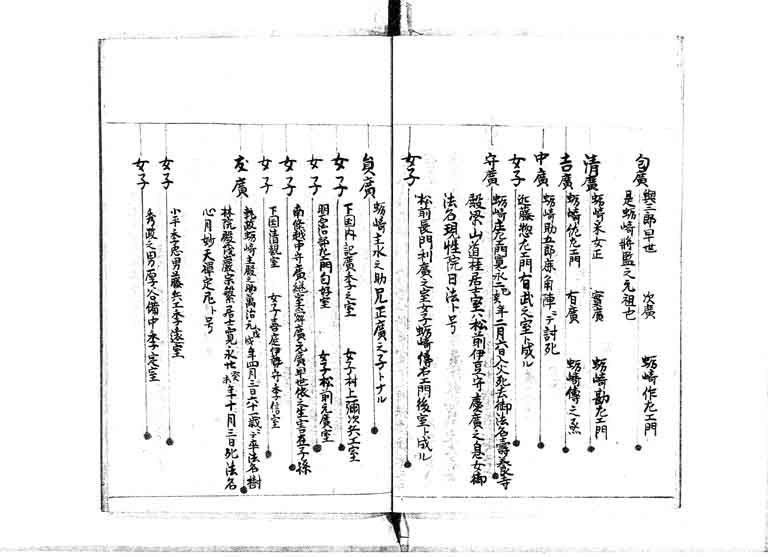 匂廣 與三郎早世 次廣 蛎崎作左エ門
是蛎崎將監之元祖也
清廣 蛎崎采女正 實廣 蛎崎勘左エ門
吉廣 蛎崎佐左エ門 有廣 蛎崎傳之烝
中廣 蛎崎助五郎 陣ニテ討死
女子 近藤惣左エ門有武之室ト成ル
守廣 蛎崎左エ門寛永二乙亥年二月六日 死去御法名壽養寺
殿梁山道桂居士室ハ松前伊豆守慶廣之息女御
法名現性院日法ト号
松前長門利廣之室女子蛎崎儀右エ門後室ト成ル
女子
貞廣 蛎崎主水之助尼正廣之子トナル
女子 下国内記廣季之室 女子村上彌次兵エ室
女子 明石 左エ門匂好室 女子松前元廣室
女子 南條越中守廣継室 廣元廣早世依之生害在子孫
女子 下国清観室 女子喜庭伊勢守季信室
友廣 執政蛎崎主殿之助萬治元戊戌年四月三日六十一歳ニテ卒法名樹
林院殿茂嚴宗繁居士 寛永廿癸未年十月三日死法名
心月妙天禪定尼ト号
女子 小平季忠男藤兵エ季遠室
女子 秀政之男厚谷備中季定室